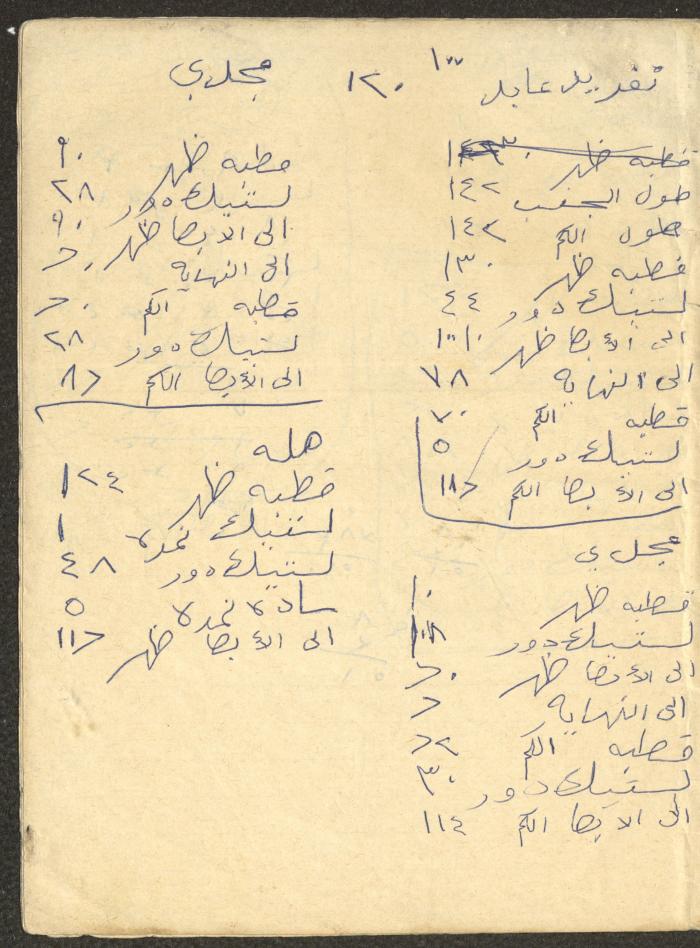 تغريد عابد ١٠٠
١٢٠
قطبه ظهر
طول الجنب ١٤٢
طول الكم ١٤٢
قطبه ظهر ١٣٠
لستيك دور ٤٤
الى الابط ظهر
الى النهايه ٧٨
قطبه الكم ٧٠
لستيك دور ٥
الى الابط الكم ١١٨
مجدلي
قطبه ظهر
لستيك دور ١٠٨
الى الابط ظهر ٢٠
الى النهايه ٢
قطبه الكم ٦٢
لستيك دور ٣٠
الى الابط الكم ١١٤
مجدلي
قطبه ظهر ٩٠
لستيك دور ٢٨
الى الابط ظهر ٩٠
الى النهايه
قطبه الكم
لستيك دور ٢٨
الى الابط الكم ٨٢
هله
قطبه ظهر ١٢٤
لستيك نمره ١
لستيك دور ٤٨
ساده نمره ٥
الى الابط ظهر ١١٢